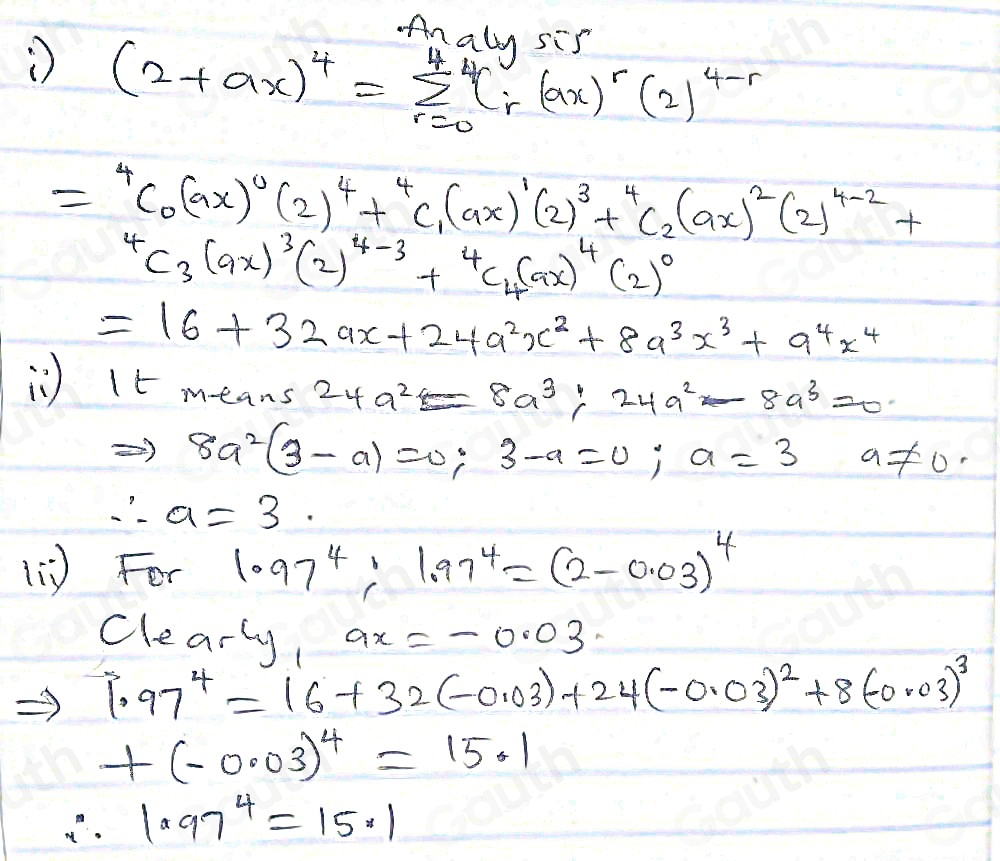 Analysis
i) (2+ax)^4 = ∑_{r=0}^{4} ^4C_r (ax)^r (2)^{4-r}
= ^4C_0(ax)^0(2)^4 + ^4C_1(ax)^1(2)^3 + ^4C_2(ax)^2(2)^{4-2} +
^4C_3(ax)^3(2)^{4-3} + ^4C_4(ax)^4(2)^0
= 16 + 32ax + 24a²x² + 8a³x³ + a⁴x⁴
ii) It means 24a² = 8a³; 24a² - 8a³ = 0.
⇒ 8a²(3-a) = 0; 3-a = 0; a = 3 a ≠ 0.
∴ a = 3.
iii) For 1.97^4; 1.97^4 = (2-0.03)^4
Clearly, ax = -0.03.
⇒ 1.97^4 = 16 + 32(-0.03) + 24(-0.03)² + 8(-0.03)³
+ (-0.03)^4 = 15.1
∴ 1.97^4 = 15.1